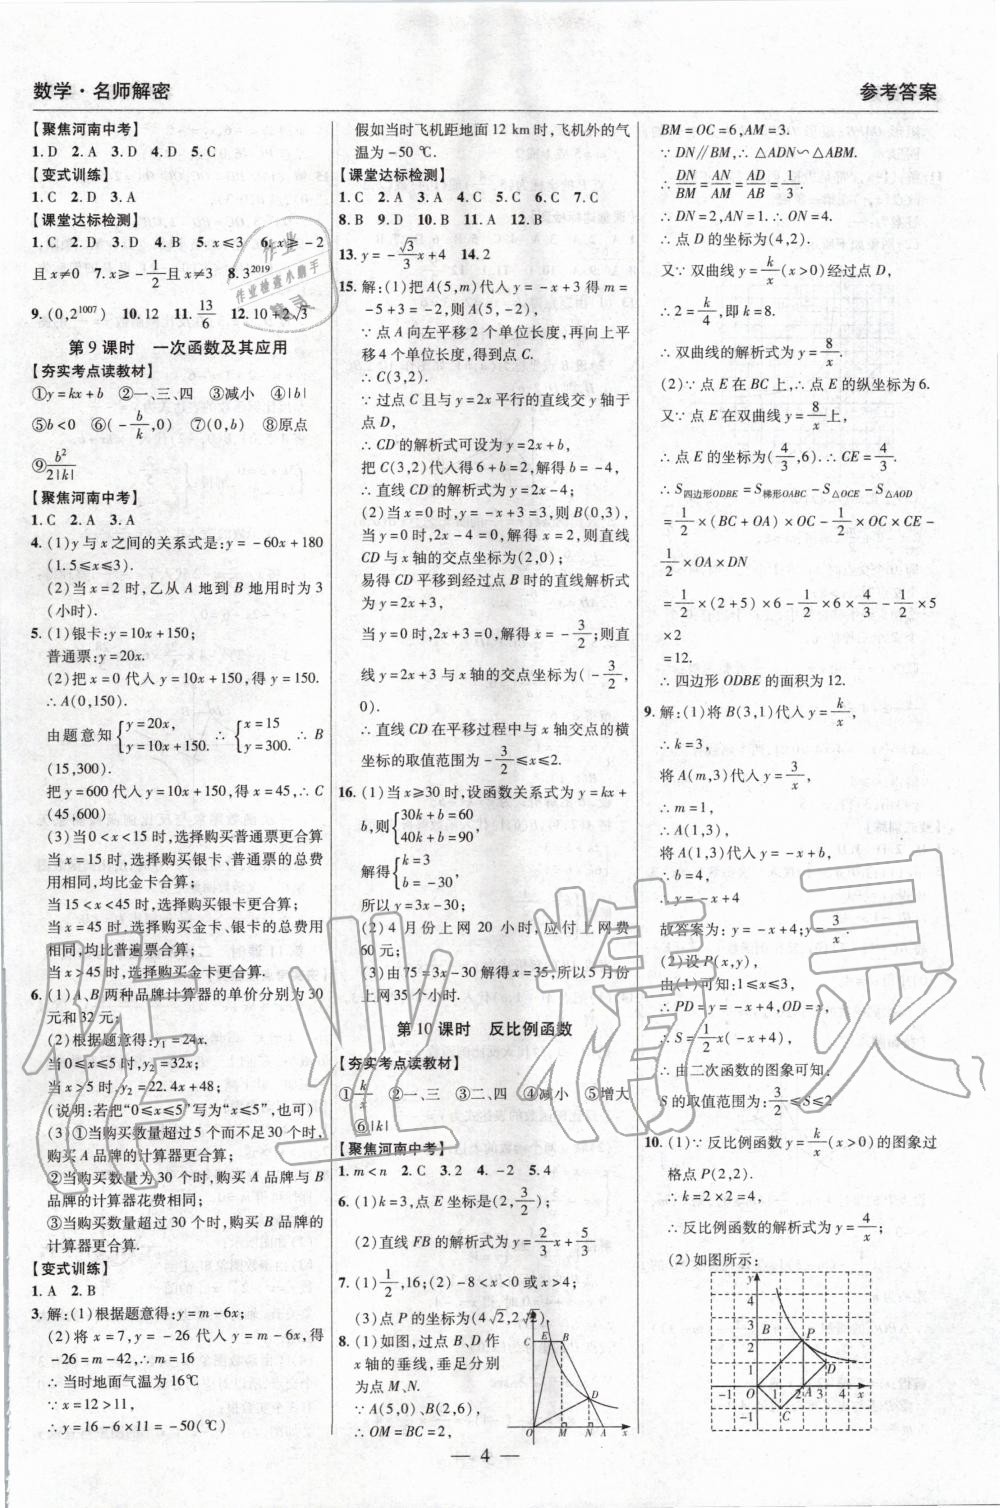 数学·名师解密
参考答案
【聚焦河南中考】
1. D 2. A 3. D 4. D 5. C
【变式训练】
1. C 2. D 3. D
【课堂达标检测】
1. C 2. D 3. D 4. B 5. x≤3 6. x≥-2
且x≠0 7. x≥-1/2且x≠0 8. 3^2019
9. (0,2^1007) 10. 12 11. 13/6 12. 10+2√3
第9课时 一次函数及其应用
【夯实考点读教材】
①y=kx+b ②一、三、四 ③减小 ④|b|
⑤b<0 ⑥(-b/k,0) ⑦(0,b) ⑧原点
⑨b²/2|k|
【聚焦河南中考】
1. C 2. A 3. A
4. (1)y与x之间的关系式是:y=-60x+180
(1.5≤x≤3).
(2)当x=2时,乙从A地到B地用时为3
(小时).
5. (1)银卡:y=10x+150;
普通票:y=20x.
(2)把x=0代入y=10x+150,得y=150.
∴A(0,150).
由题意知{y=20x, y=10x+150, ∴{x=15 y=300. ∴B
(15,300).
把y=600代入y=10x+150,得x=45,∴C
(45,600)
(3)当0<x<15时,选择购买普通票更合算
当x=15时,选择购买银卡、普通票的总费
用相同,均比金卡合算;
当15<x<45时,选择购买银卡更合算
当x=45时,选择购买金卡、银卡的总费用
相同,均比普通票合算;
当x>45时,选择购买金卡更合算.
6. (1)A、B两种品牌计算器的单价分别为30
元和32元;
(2)根据题意得:y₁=24x,
当0≤x≤5时,y₂=32x;
当x>5时,y₂=22.4x+48;
(说明:若把“0≤x≤5”写为“x≤5”,也可)
(3)①当购买数量超过5个而不足30个时,
购买A品牌的计算器更合算;
②当购买数量为30个时,购买A品牌与B
品牌的计算器花费相同;
③当购买数量超过30个时,购买B品牌的
计算器更合算.
【变式训练】
1. A 2. B
3. 解:(1)根据题意得:y=m-6x;
(2)将x=7,y=-26代入y=m-6x,得
-26=m-42,∴m=16
∴当时地面气温为16℃
∵x=12>11,
∴y=16-6×11=-50(℃)
假如当时飞机距地面12 km时,飞机外的气
温为-50℃.
【课堂达标检测】
1. C 2. A 3. A 4. C 5. C 6. C 7. C
8. B 9. D 10. B 11. A 12. B
13. y=-√3/3x+4 14. 2
15. 解:(1)把A(5,m)代入y=-x+3得m=
-5+3=-2,则A(5,-2),
∵点A向左平移2个单位长度,再向上平移
4个单位长度,得到点C.
∴C(3,2).
∵过点C且与y=2x平行的直线交y轴于
点D,
∴CD的解析式可设为y=2x+b,
把C(3,2)代入得6+b=2,解得b=-4,
∴直线CD的解析式为y=2x-4;
(2)当x=0时,y=-x+3=3,则B(0,3),
当y=0时,2x-4=0,解得x=2,则直线
CD与x轴的交点坐标为(2,0);
易得CD平移到经过点B时的直线解析式
为y=2x+3,
当y=0时,2x+3=0,解得x=-3/2;则直
线y=2x+3与x轴的交点坐标为(-3/2,
0).
∴直线CD在平移过程中与x轴交点的横
坐标的取值范围为-3/2≤x≤2.
16. (1)当x≥30时,设函数关系式为y=kx+
b,则{30k+b=60 40k+b=90,
解得{k=3 b=-30,
所以y=3x-30;
(2)4月份上网20小时,应付上网费
60元;
(3)由75=3x-30解得x=35,所以5月份
上网35个小时.
第10课时 反比例函数
【夯实考点读教材】
①k/x ②一、三 ③二、四 ④减小 ⑤增大
⑥|k|
【聚焦河南中考】
1. m<n 2. C 3. 2 4. -2 5. 4
6. (1)k=3,点E坐标是(2,3/2);
(2)直线FB的解析式y=2/3x+5/3
7. (1)1/2,16;(2)-8<x<0或x>4;
(3)点P的坐标为(4√2,2√2).
8. (1)如图,过点B、D作
x轴的垂线,垂足分别
为点M、N.
∵A(5,0)、B(2,6),
∴OM=BC=2,
y
C E B
D
O M N A x
BM=OC=6,AM=3.
∵DN∥BM,∴△ADN∽△ABM.
∴DN/BM=AN/AM=AD/AB=1/3.
∴DN=2,AN=1,∴ON=4.
∴点D的坐标为(4,2).
又∵双曲线y=k/x(x>0)经过点D,
∴2=k/4,即k=8.
∴双曲线的解析式为y=8/x.
(2)∵点E在BC上,∴点E的纵坐标为6.
又∵点E在双曲线y=8/x上,
∴点E的坐标为(4/3,6).∴CE=4/3.
∴S四边形ODBE=S梯形OABC-S△OCE-S△AOD
=1/2×(BC+OA)×OC-1/2×OC×CE-
1/2×OA×DN
=1/2×(2+5)×6-1/2×6×4/3-1/2×5
×2
=12.
∴四边形ODBE的面积为12.
9. 解:(1)将B(3,1)代入y=k/x,
∴k=3,
将A(m,3)代入y=3/x,
∴m=1,
∴A(1,3),
将A(1,3)代入y=-x+b,
∴b=4,
∴y=-x+4
故答案为:y=-x+4;y=3/x.
(2)设P(x,y),
由(1)可知:1≤x≤3,
∴PD=y=-x+4,OD=x,
∴S=1/2x(-x+4),
∴由二次函数的图象可知:
S的取值范围为:3/2≤S≤2
10. (1)∵反比例函数y=k/x(x>0)的图象过
格点P(2,2).
∴k=2×2=4,
∴反比例函数的解析式为y=4/x;
(2)如图所示:
y
4
3
2
1
P
B
D
-1 0 1 2 A 3 4 x
-1 C
— 4 —
作业
作业检查小助手
精灵
作业精灵